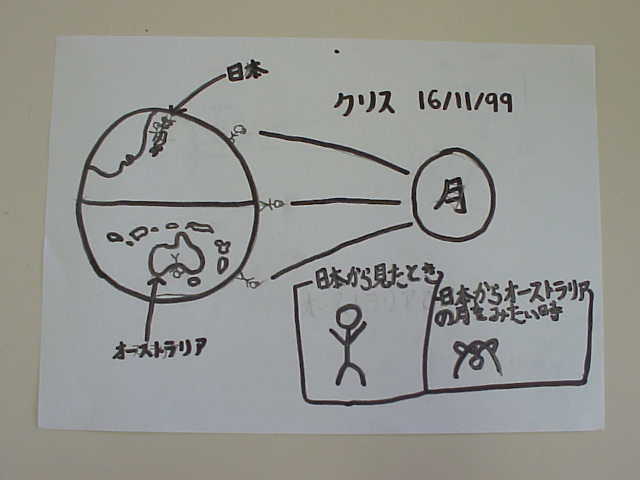 日本
クリス 16/11/99
月
オーストラリア
日本から見たとき
日本からオーストラリア
の月をみたい時